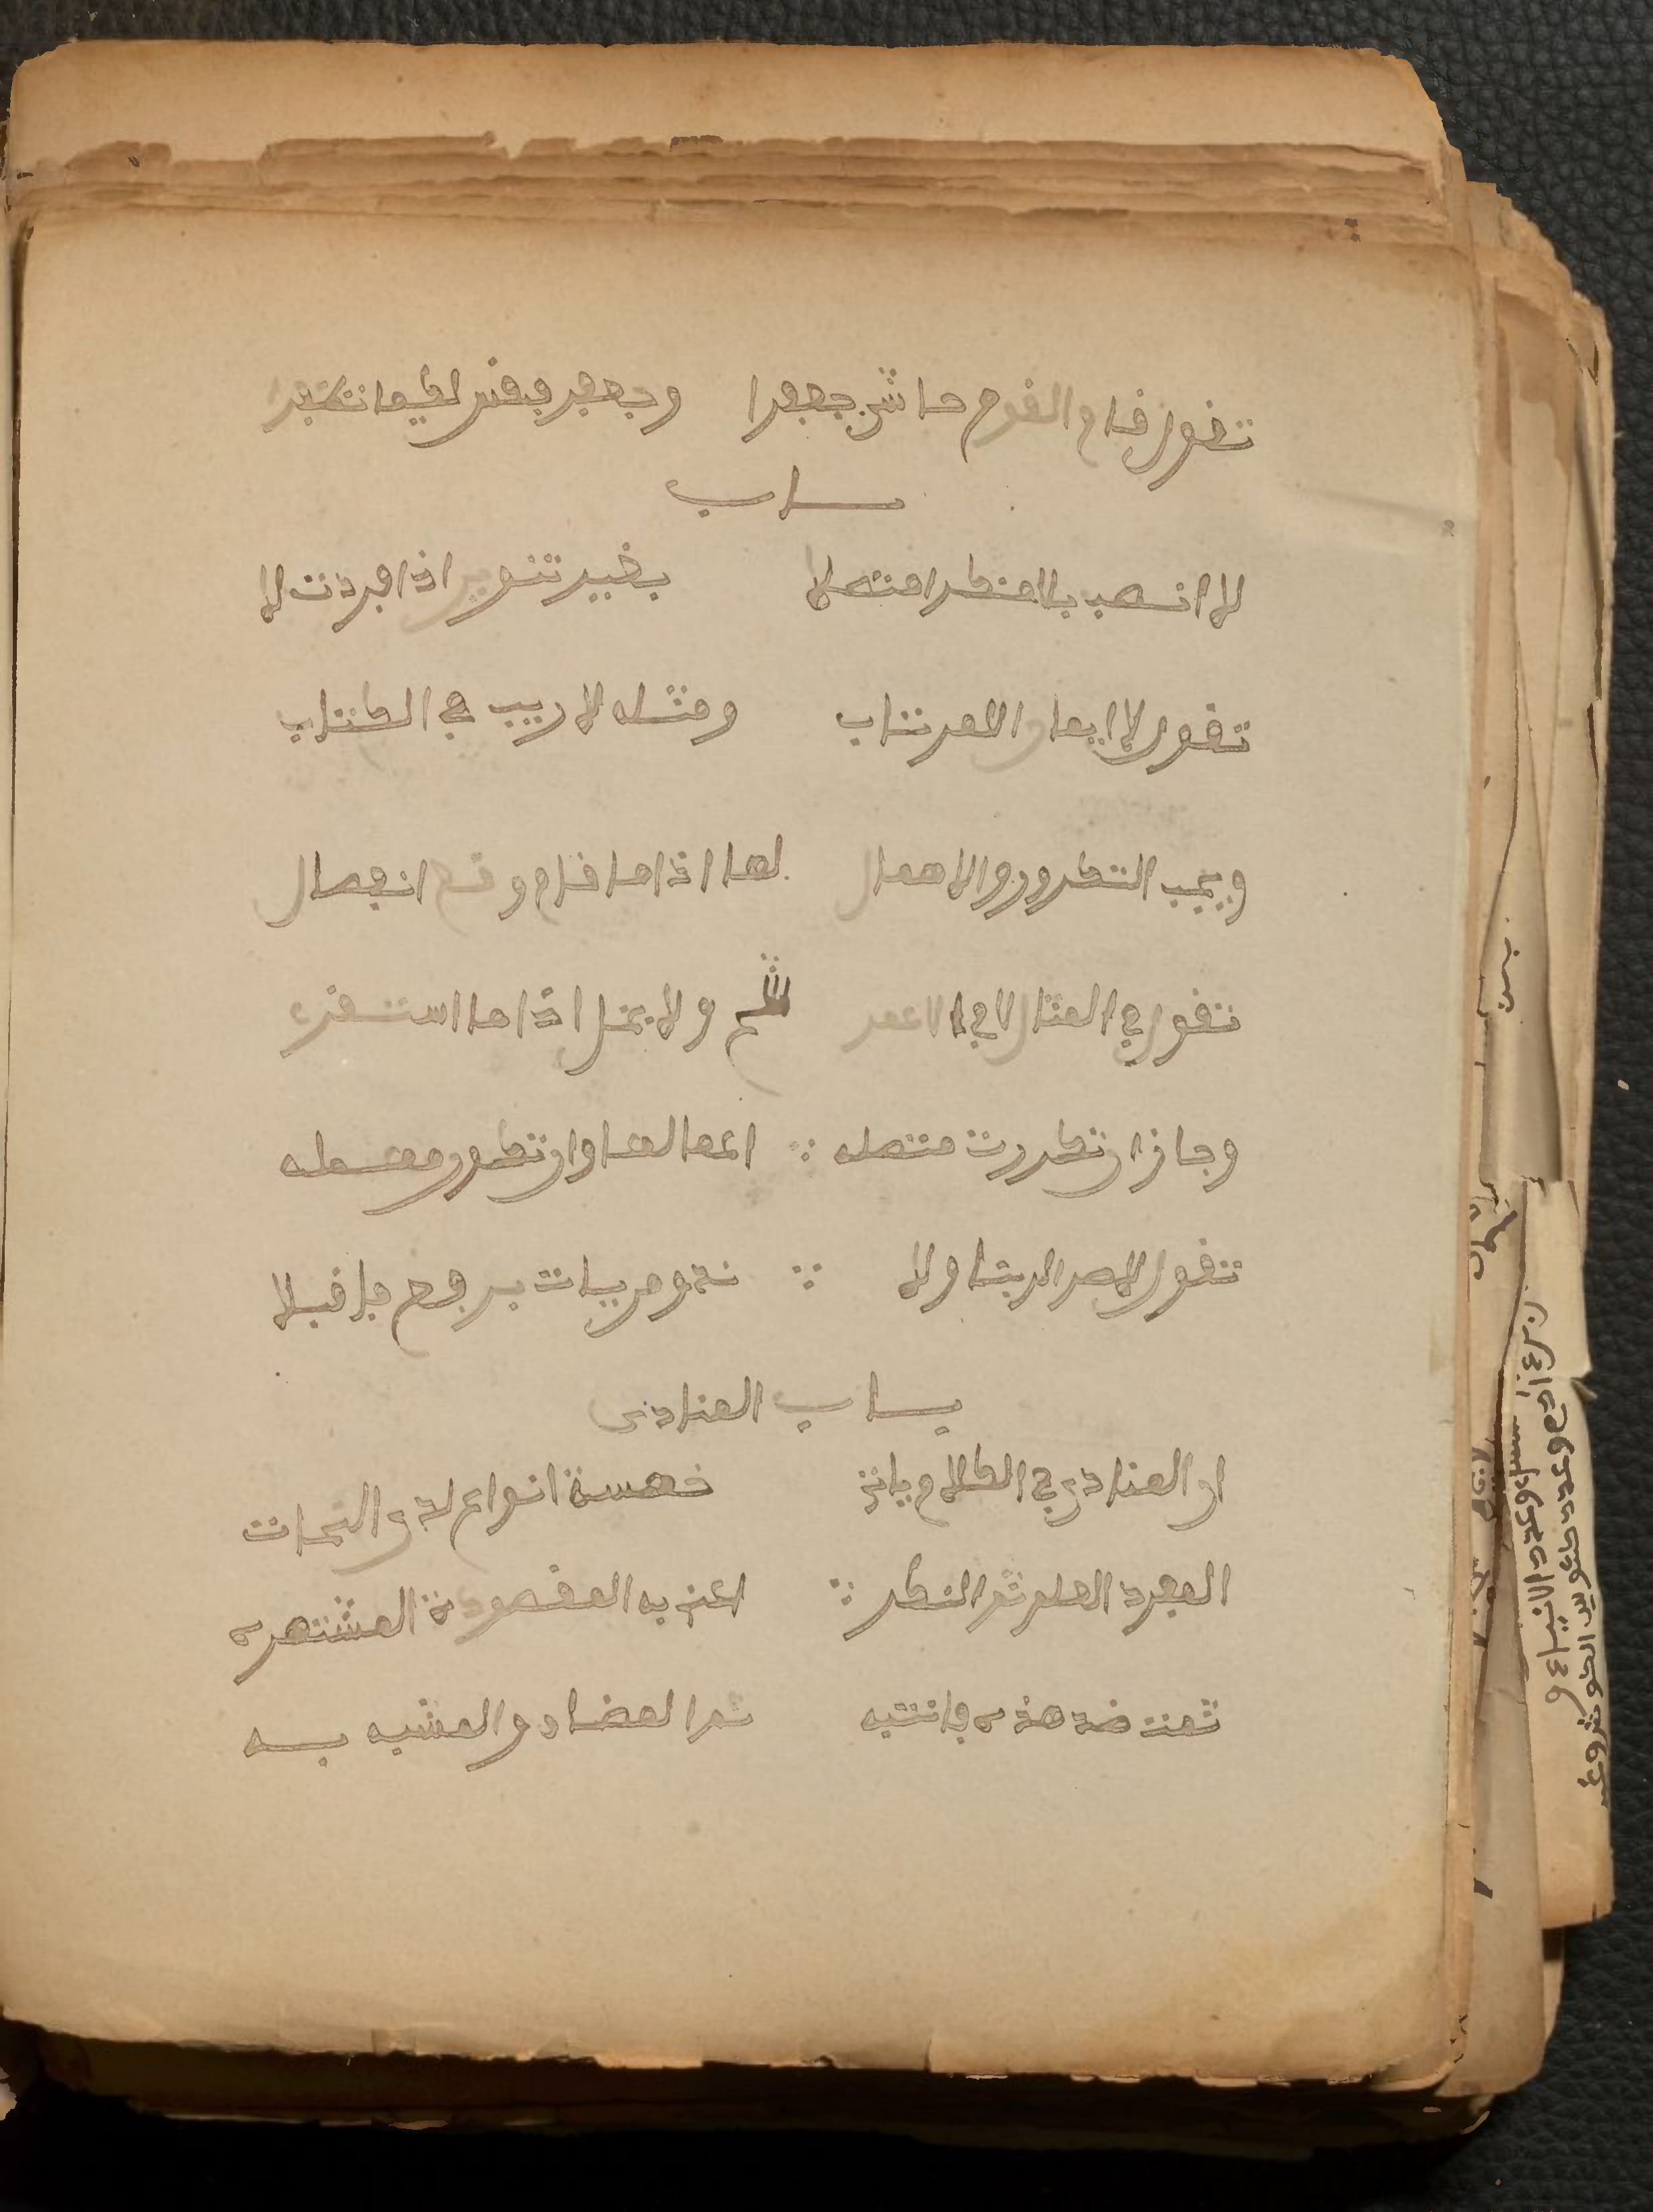 تقول قام القوم حاشى جعفرا وجعفر فقس لكيما تظفرا
باب
لا انصب بلا منكرا متصلا بغير تنوين اذا افردت لا
تقول لا ايمان للمرتاب ومثله لا ريب في الكتاب
ويجب التكرير والاهمال لها اذا ما قام وقع انفصال
تقول في المثال لا في عمر شح ولا بخل اذا ما استقر
وجاز ان تكررت متصله اعمالها وان تكون مهمله
تقول لا ضد لربنا ولا ند ومن يات برفع فاقبلا
باب المنادى
ان المنادى في الكلام ياتي خمسة انواع لدى النحات
المفرد العلم ثم النكره اعني به المقصودة المشتهره
ثمت ضد هذه فانتبه ثم المضاف والمشبه به